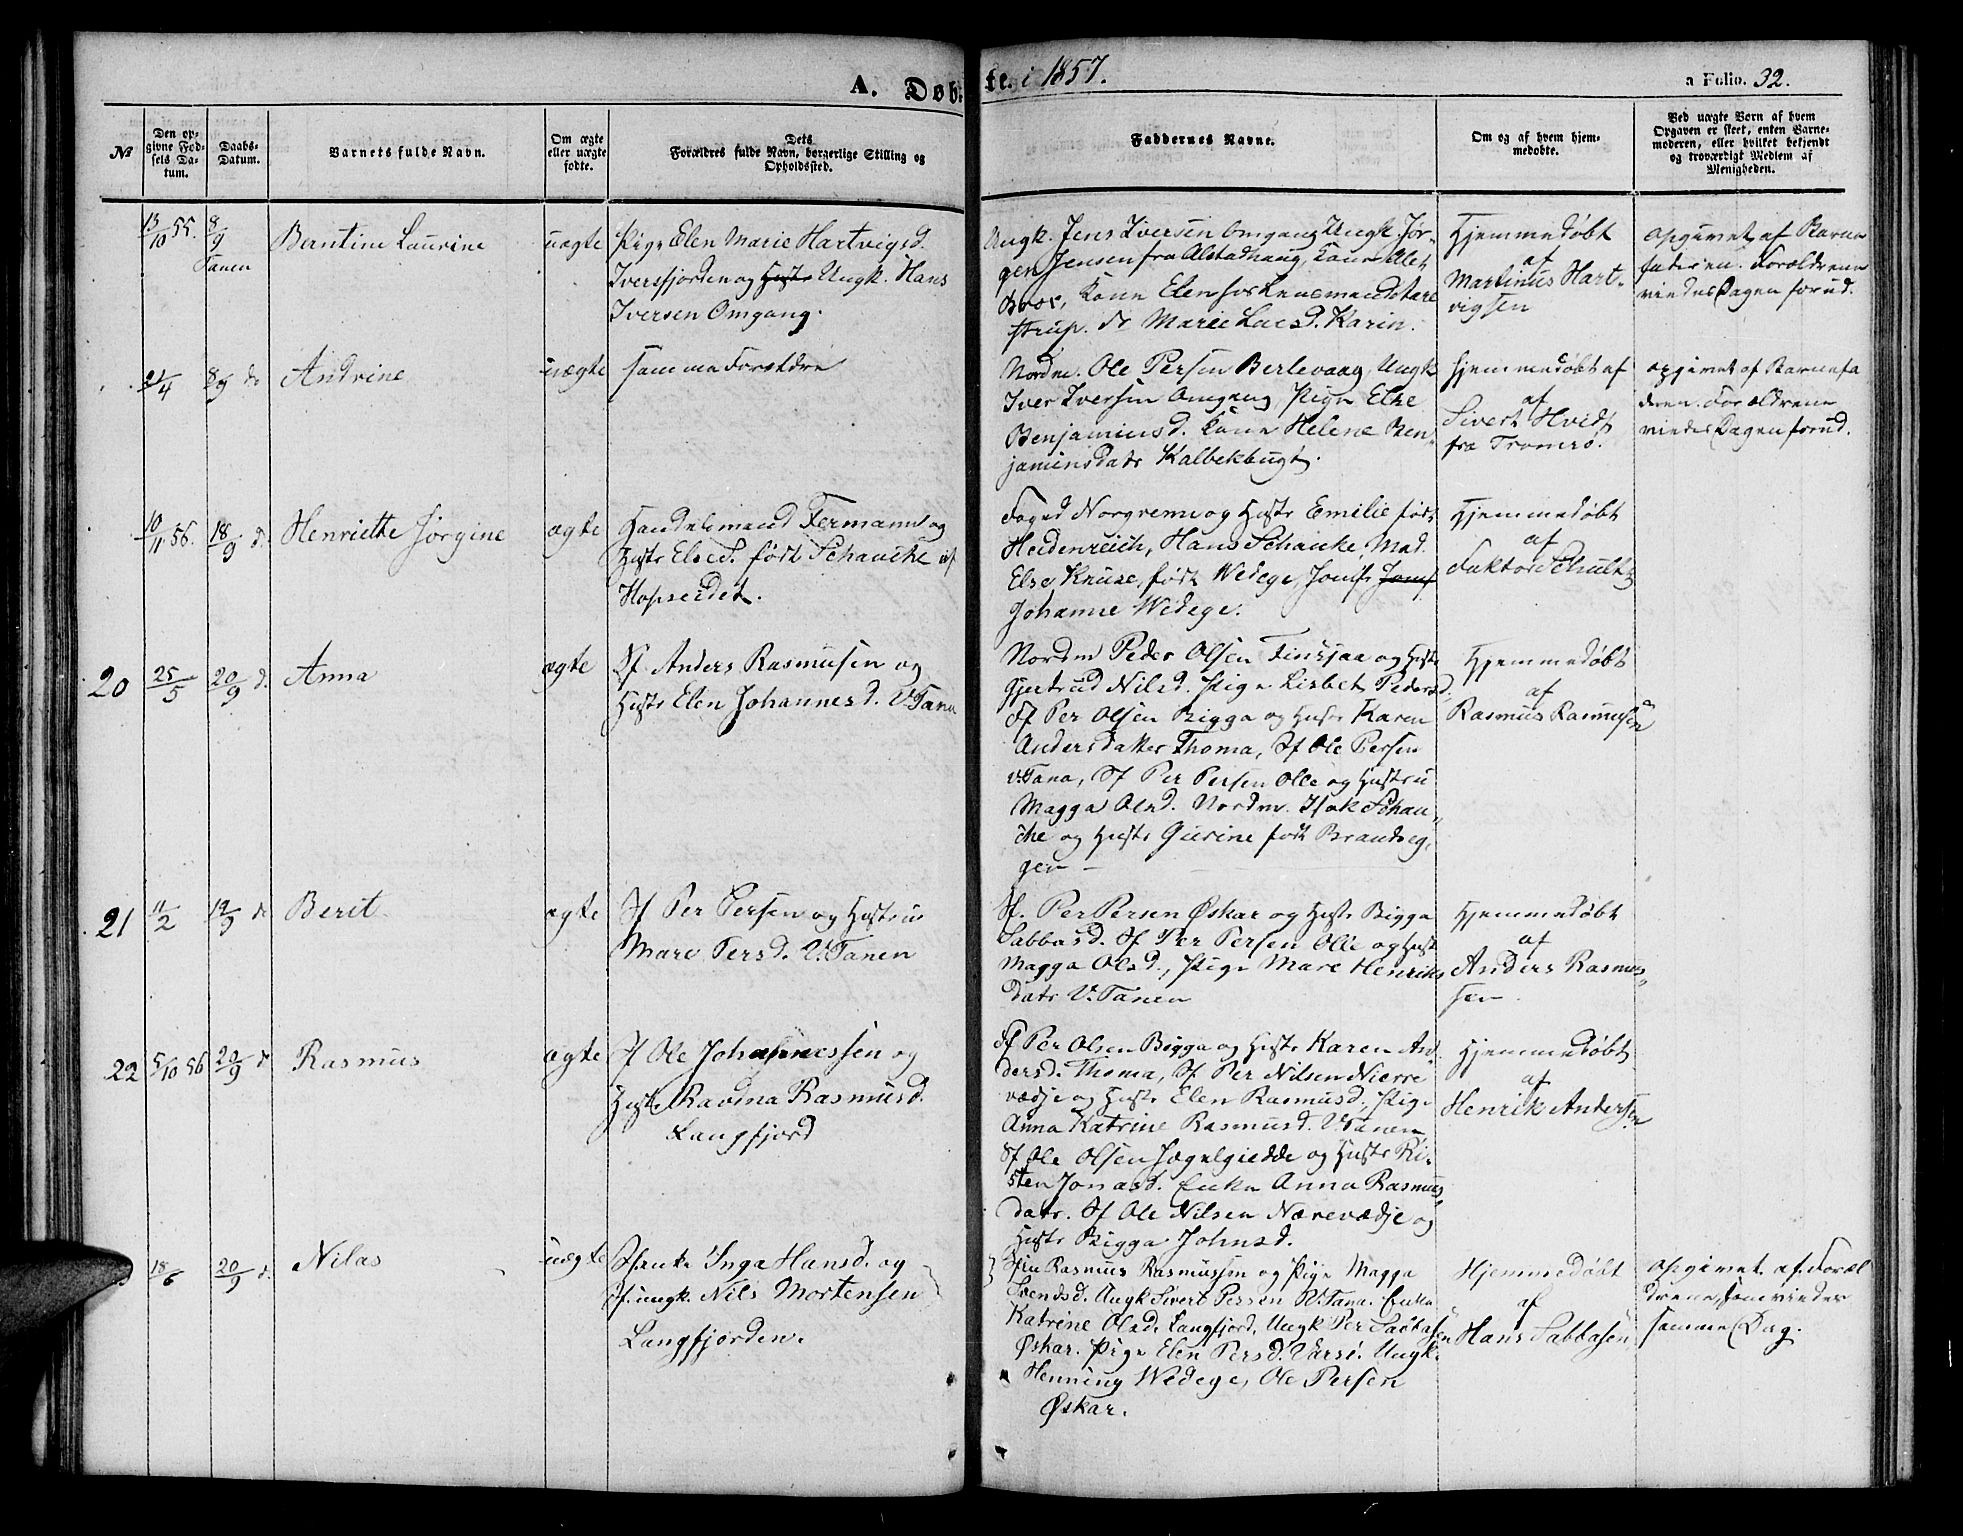 A. Døb-
te. i 1857.
a Folio. 32.
No
Den op-
givne Fød-
sels Da-
tum.
Daabs-
Datum.
Barnets fulde Navn.
Om ægte
eller uægte
fødte.
Dets
Forældres fulde Navn, borgerlige Stilling og
Opholdssted.
Faddernes Navne.
Om og af hvem hjem-
medøbte.
Ved uægte Børn af hvem
Opgaven er skeet, enten Barne-
moderen, eller hvilket bekjendt
og troværdigt Medlem af
Menigheden.
13/10 55. 8/9 Tanen
Berntine Laurine
uægte
Pige Elen Marie Hartvigsd.
Iversfjorden og Hustr Ungk. Hans
Iversen Omgang.
Ungk. Jens Iversen Omgang, Ungk Jör-
gen Jensen fra Alstadhaug, Kone Alet
Kone Elen hos Lensmand
Marie Lacsd. Karin.
Hjemmedøbt
af
Martinus Hart-
vigsen
opgivet af Barne
faderen. Forældrene
viedes Dagen forud.
21/4 8/9 do
Andrine
uægte
samme Forældre
Nordm. Ole Persen Berlevaag, Ungk
Iver Iversen Omgang, Pige Else
Benjaminsd. Kone Helene Ben-
jaminsdatr Kalbekbugt.
hjemmedøbt af
af
Sivert Hvid
fra Tromsø.
opgivet af Barnefa
deren. Forældrene
viedes Dagen forud.
10/11 56. 18/9 d.
Henriette Jørgine
ægte
Handelsmand Fermann og
Hustr Else d. født Schancke af
Hopseidet.
Foged Norgrenn og Hustr Emilie født
Heidenreich, Hans Schancke, Mad.
Else Kruse, født Wedege, Jomfr Jomf
Johanne Wedege.
Hjemmedøbt
af
Faktor Schultz
20
25/5 20/9 d.
Anna
ægte
Sf Anders Rasmusen og
Hustr Elen Johannesd. V. Tana
Nordm Peder Olsen Finsjaa og Hustr
Gjertrud Nilsd. Pige Lisbet Pedersd.
Sf Per Olsen Bigga og Hustr Karen
Andersdatter Thoma, Sf Ole Persen
v. Tana, Sf Per Persen Olle og Hustru
Magga Olsd. Nordm. Isak Schan-
che og Hustr Gurine født Brandseg-
gen
Hjemmedøbt
af
Rasmus Rasmusen
21
11/2 19/9 do
Berit
ægte
Sf Per Persen og Hustru
Mare Persd. V. Tanen
Sf. Per Persen Øskar og Hustr Bigga
Sabbasd. Sf Per Persen Olle og Hustr
Magga Olsd., Pige Mare Henriks
datr V. Tanen
Hjemmedøbt
af
Anders Rasmus-
sen
22
5/10 56 20/9 d
Rasmus
ægte
Sf Ole Johannessen og
Hustr Ravina Rasmusd.
Langfjord
Sf Per Olsen Bigga og Hustr Karen An-
dersd. Thoma, Sf Per Nilsen Nierre
vædje og Hustr Elen Rasmusd, Pige
Anna Katrine Rasmusd. V Tanen
Sf Ole Olsen og Hustr Ki-
sten Jonasd. Enke Anna Rasmus-
datr. Sf Ole Nilsen Nærevædje og
Hustr Bigga Johnsd.
Hjemmedøbt
af
Henrik Andersen
18/6 20/9 d.
Nilas
uægte
Sf enke Inga Hansd. og
Sf. ungk. Nils Mortensen
Langfjorden.
Rasmus Rasmussen og Pige Magga
Svendsd. Ungk Sivert Persen V. Tana. Enke
Katrine Olsd. Langfjord, Ungk Per Sabbasen
Øskar. Pige Elen Persd. Varsi. Ungk.
Henning Wedege, Ole Persen
Øskar.
Hjemmedøbt
af
Hans Sabbasen
opgivet af Foræl
drene, som viedes
samme Dag.